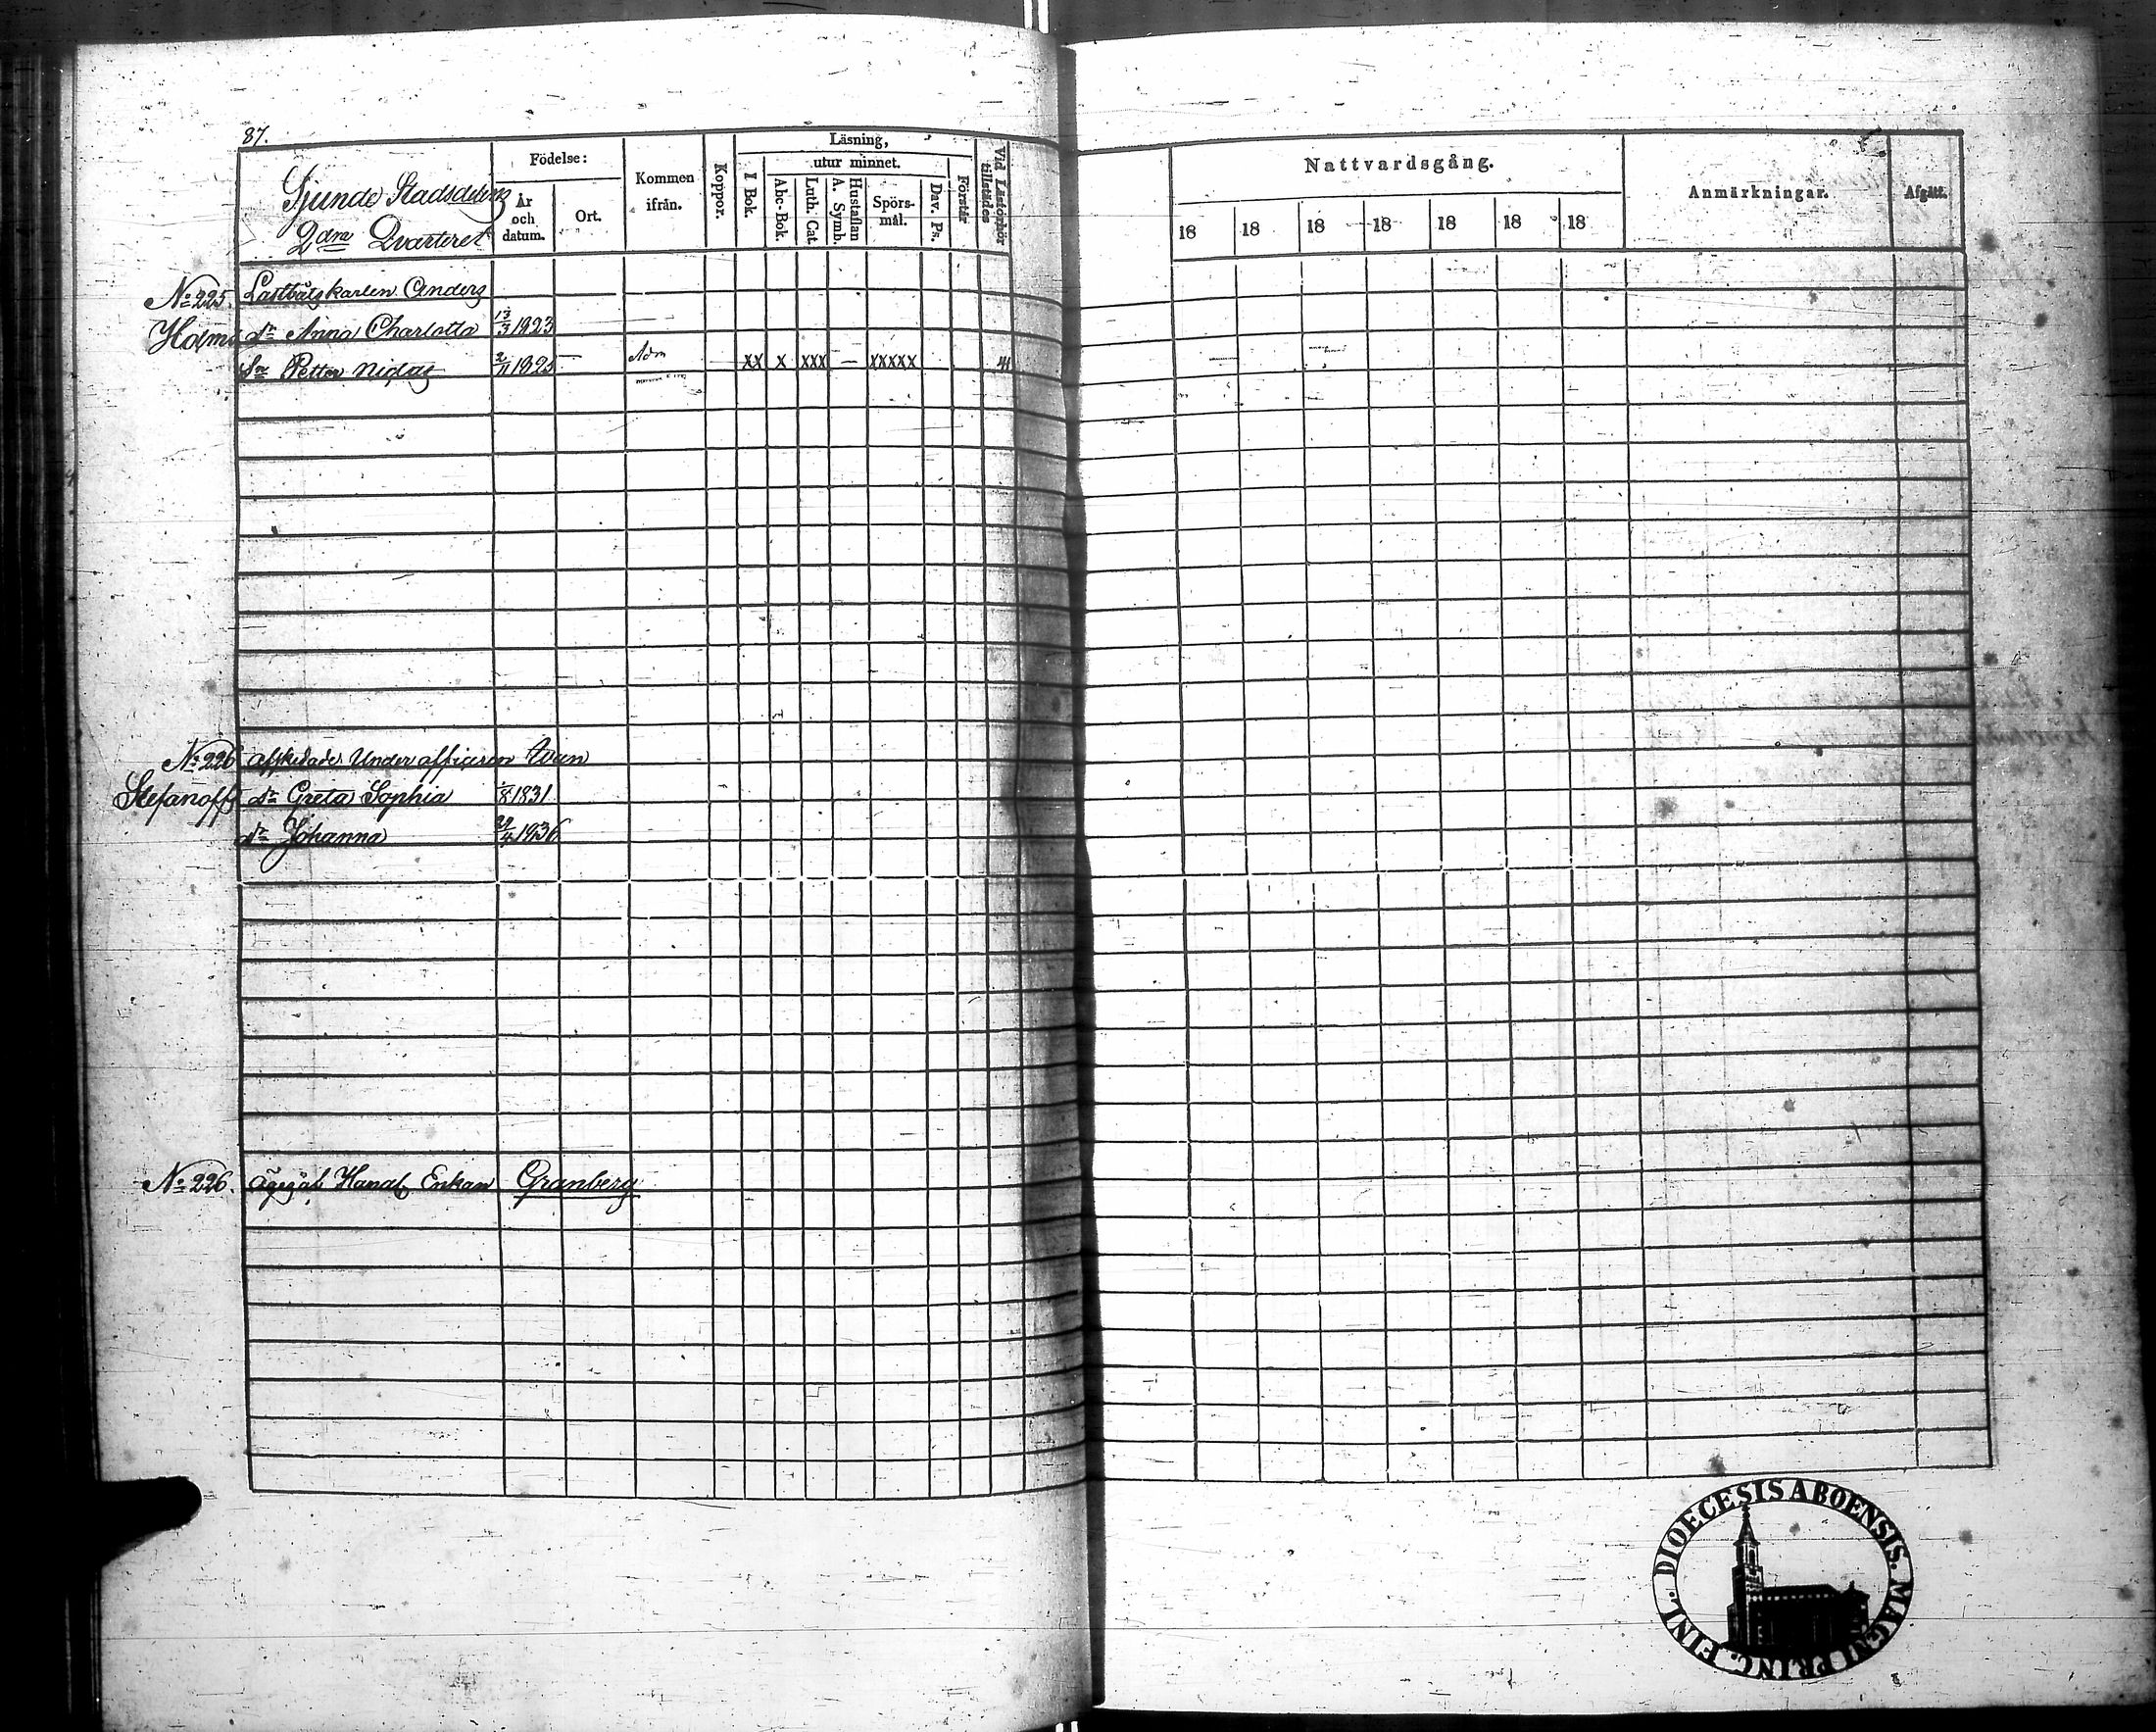 87.
Sjunde Stadsdelens
2dra Qvarteret
Födelse:
År och datum.
Ort.
Kommen ifrån.
Koppor.
Läsning,
I Bok.
utur minnet.
Abc-Bok.
Luth. Cat.
Hustaflan A. Symb.
Spörs-mål.
Dav. Ps.
Förstår
Vid Läsförhör tillstädes
Nattvardsgång.
18 18 18 18 18 18 18
Anmärkningar.
Afgått.
No 225. Anders
Holms dr Anna Charlotta 13/3 1823
Sn Petter 2/11 1825 Adm xx x xxx — xxxxx
No 226 Afskedade Under officeren Ivan
Stefanoffs dr Greta Sophia 8 1831
dr Johanna 1836
No 226. Enkan Granberg
DIOECESIS ABOENSIS. MAGNI PRINC. FINL.